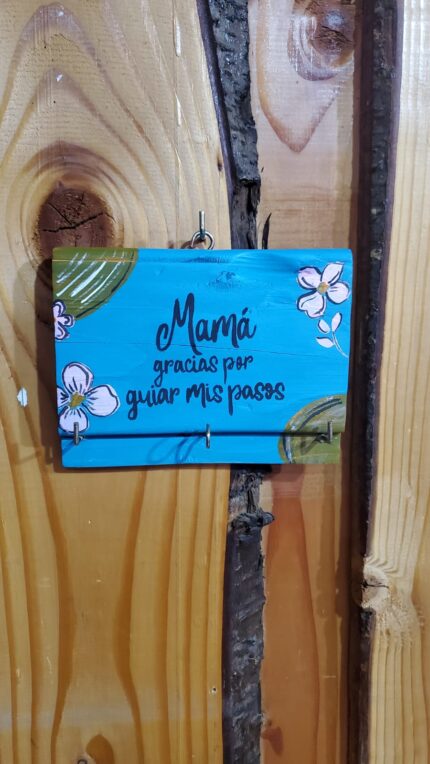 Mamá
gracias por
guiar mis pasos